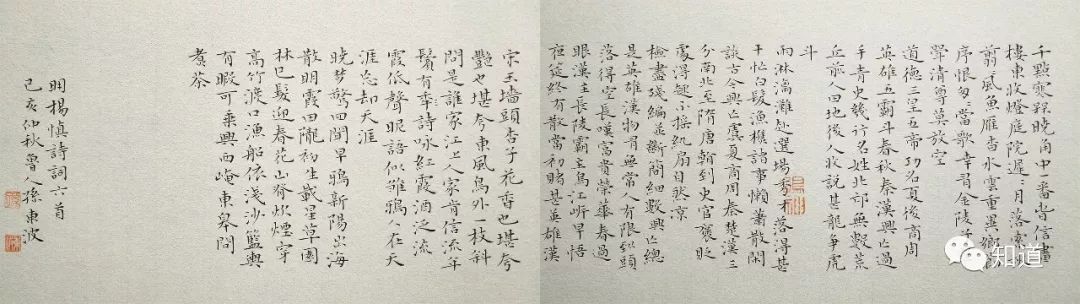 千點寒梅曉角中一番春信畫
樓東收燈庭院遲〻月落索
翦〻風魚雁杳水雲重異鄉節
序恨匆〻當歌幸有金陵子
斝清尊莫放空
道德三皇五帝功名夏後商周
英雄五霸斗春秋秦漢興亡過
手青史幾行名姓北邙無數荒
丘前人田地後人收說甚龍爭虎
斗
雨淋漓灘赴選場秀才落得甚
干忙白髮漁樵諸事懶蕭散閑
談古今興亡虞夏商周秦楚漢三
分南北至隋唐翰到史官褒貶
處得趣小搖紈扇自然涼
檢盡殘編並斷簡細數興亡總
是英雄漢物有無常人有限到頭
落得空長嘆富貴榮華春過
眼漢主長陵霸主烏江岍早悟
夜筵終有散當初賭甚英雄漢
宋玉墻頭杏子花香也堪夸
豔也堪夸東風鳥外一枝斜
問是誰家江上人家肯信流年
鬢有華詩咏紅霞酒泛流
霞低聲昵語似雛鴉人在天
涯忘却天涯
曉夢驚回聞早鴉新陽出海
散明霞田隴初生戴星草園
林已髮迎春花山脊炊煙穿
高竹溪口漁船依淺沙籃輿
有暇可乘興西崦東皋問
煮茶
明楊慎詩詞六首
己亥仲秋魯人孫東波
知道